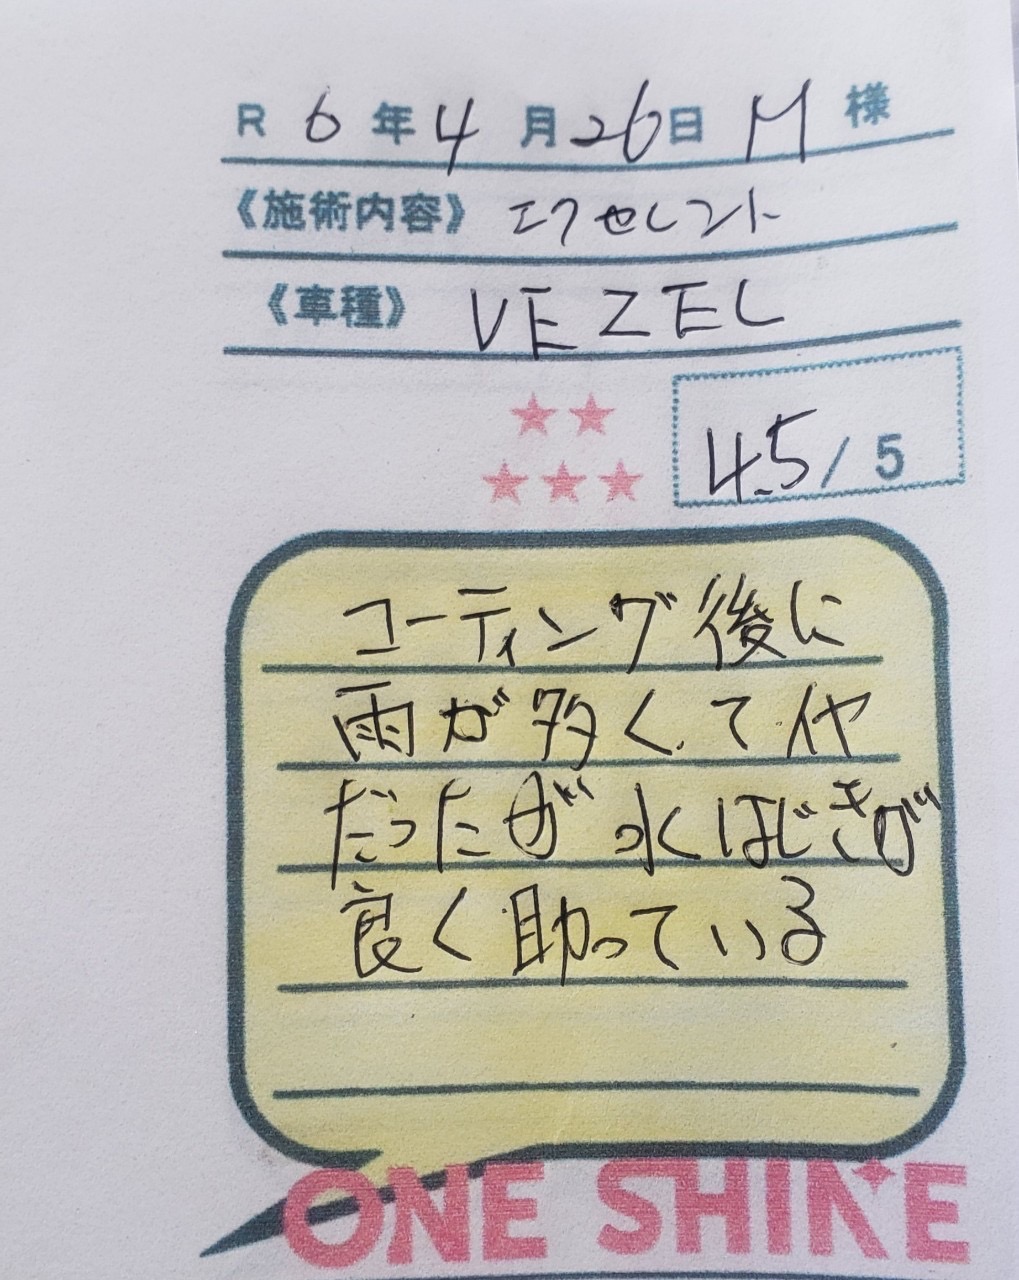 R 6年4月26日 M 様
《施術内容》 エクセレント
《車種》 VEZEL
★★
★★★
4.5/5
コーティング後に
雨が多くてイヤ
だったが水はじきが
良く助っている
ONE SHINE